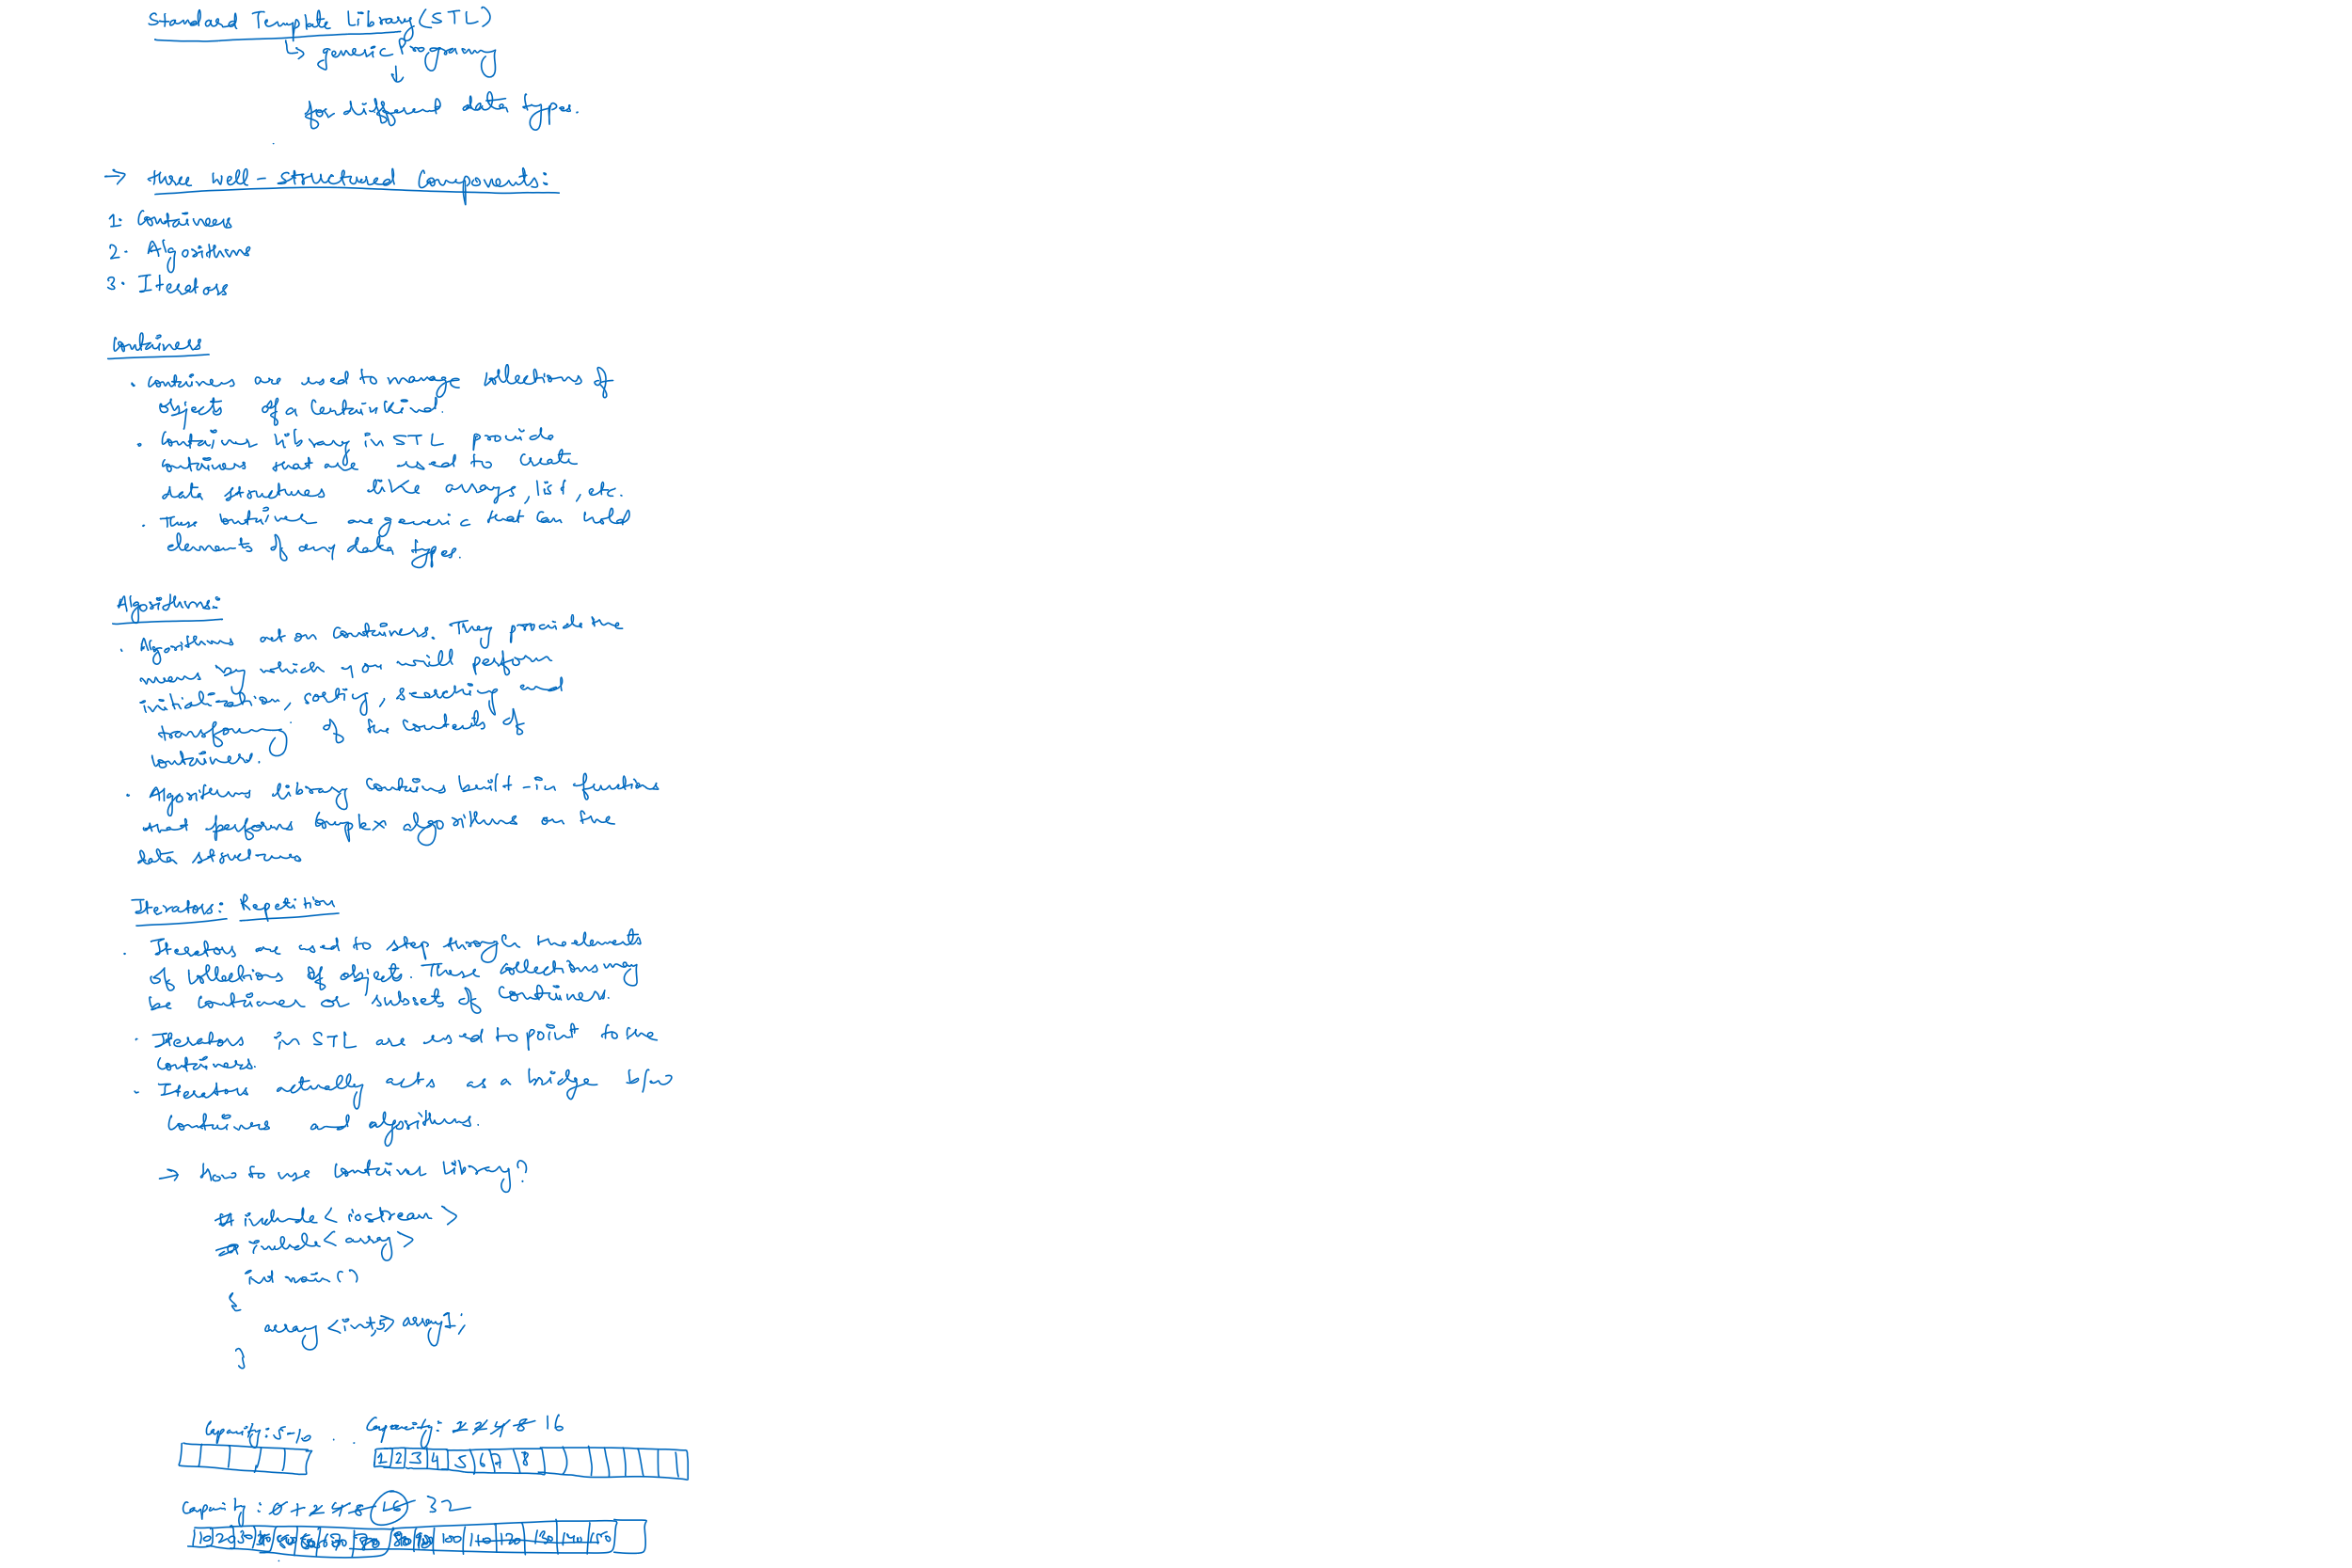 Standard Template Library (STL)
↳ generic Programg
↓
for different data types.
→ three well-structured Components:
1. Containeers
2. Algorithms
3. Iterators
Containers
· Containers are used to manage collections of
objects of a Certain Kind.
· Container library in STL provide
containers that are used to create
data structures like arrays, list, etc.
· These container are generic that can hold
elements of any data types.
Algorithms:
· Algorithms act on containers. They provide the
means by which you will perform
initialization, sorting, searching and
transforming of the contents of
containers.
· Algorithms library contains built-in functions
that performs complex algorithms on the
data structures
Iterators: Repetition
· Iterators are used to step through the elements
of collections of objects. These collections may
be container or subsets of containers.
· Iterators in STL are used to point to the
containers.
· Iterators actually acts as a bridge b/w
containers and algorithms.
→ How to use container library?
#include <iostream>
#include <array>
int main()
{
array <int,5> array1;
}
Capacity: 5-10 Capacity: 1 2 4 8 16
1 2 3 4 5 6 7 8
Capacity: 0 1 2 4 8 16 32
10 20 30 80 90 100 110 120 130 140 150